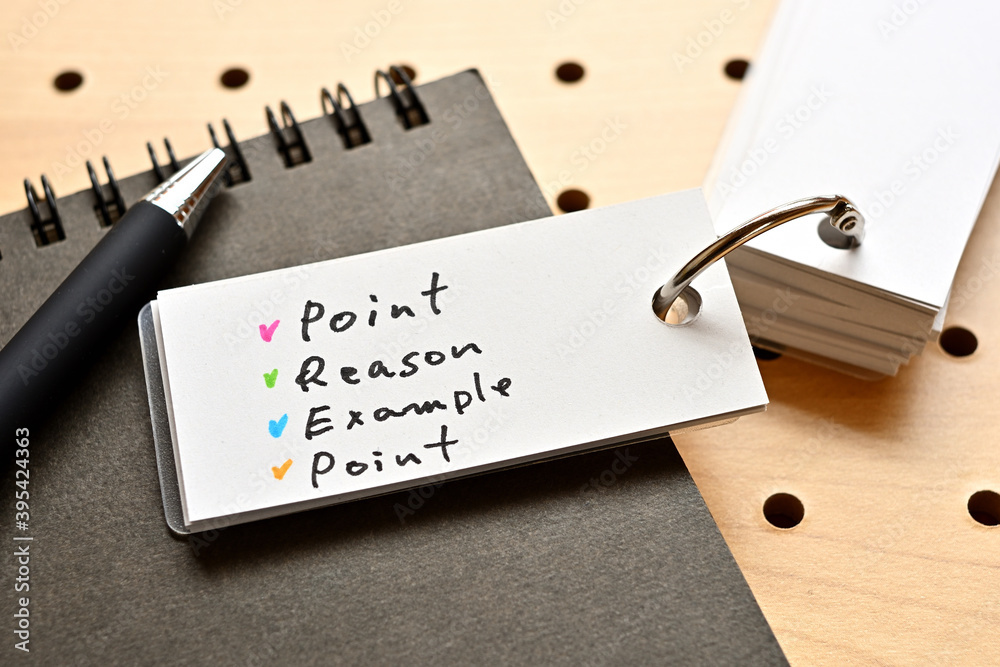 Point
Reason
Example
Point
Adobe Stock | #395424363